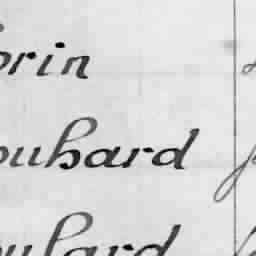 orin
ouhard
oulard